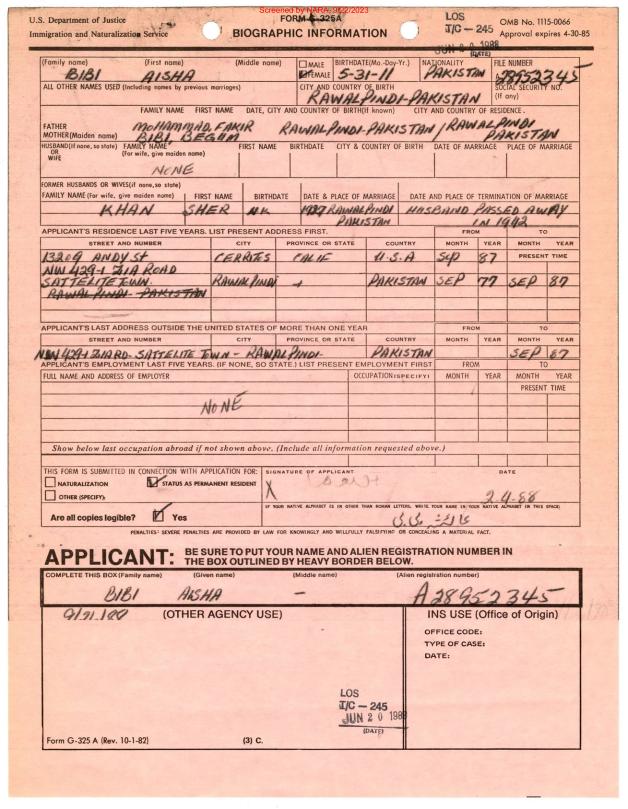 Screened by NARA, 9/22/2023
U.S. Department of Justice
Immigration and Naturalization Service
FORM G-325A
BIOGRAPHIC INFORMATION
LOS
I/C — 245
JUN 20 1988
(DATE)
OMB No. 1115-0066
Approval expires 4-30-85
(Family name) (First name) (Middle name) MALE FEMALE BIRTHDATE(Mo.-Day-Yr.) NATIONALITY FILE NUMBER
BIBI AISHA 5-31-11 PAKISTAN 28952345
ALL OTHER NAMES USED (Including names by previous marriages) CITY AND COUNTRY OF BIRTH SOCIAL SECURITY NO. (If any)
RAWALPINDI-PAKISTAN
FAMILY NAME FIRST NAME DATE, CITY AND COUNTRY OF BIRTH(If known) CITY AND COUNTRY OF RESIDENCE.
FATHER MOHAMMAD, FAKIR RAWALPINDI-PAKISTAN / RAWALPINDI
MOTHER(Maiden name) BIBI, BEGUM PAKISTAN
HUSBAND(If none, so state) OR WIFE FAMILY NAME (For wife, give maiden name) FIRST NAME BIRTHDATE CITY & COUNTRY OF BIRTH DATE OF MARRIAGE PLACE OF MARRIAGE
NONE
FORMER HUSBANDS OR WIVES(if none,so state)
FAMILY NAME (For wife, give maiden name) FIRST NAME BIRTHDATE DATE & PLACE OF MARRIAGE DATE AND PLACE OF TERMINATION OF MARRIAGE
KHAN SHER UK 1927 RAWALPINDI HUSBAND PASSED AWAY
PAKISTAN IN 1942
APPLICANT'S RESIDENCE LAST FIVE YEARS. LIST PRESENT ADDRESS FIRST. FROM TO
STREET AND NUMBER CITY PROVINCE OR STATE COUNTRY MONTH YEAR MONTH YEAR
13209 ANDY St CERRITOS CALIF U.S.A Sep 87 PRESENT TIME
NW 429-1 ZIA ROAD
SATTELITE TOWN. RAWALPINDI PAKISTAN SEP 77 SEP 87
RAWALPINDI PAKISTAN
APPLICANT'S LAST ADDRESS OUTSIDE THE UNITED STATES OF MORE THAN ONE YEAR FROM TO
STREET AND NUMBER CITY PROVINCE OR STATE COUNTRY MONTH YEAR MONTH YEAR
SATTELITE TOWN - RAWALPINDI- PAKISTAN SEP 87
APPLICANT'S EMPLOYMENT LAST FIVE YEARS. (IF NONE, SO STATE.) LIST PRESENT EMPLOYMENT FIRST FROM TO
FULL NAME AND ADDRESS OF EMPLOYER OCCUPATION(SPECIFY) MONTH YEAR MONTH YEAR
PRESENT TIME
NONE
Show below last occupation abroad if not shown above. (Include all information requested above.)
THIS FORM IS SUBMITTED IN CONNECTION WITH APPLICATION FOR: SIGNATURE OF APPLICANT DATE
NATURALIZATION STATUS AS PERMANENT RESIDENT
OTHER (SPECIFY): X 2.4.88
IF YOUR NATIVE ALPHABET IS IN OTHER THAN ROMAN LETTERS, WRITE YOUR NAME IN YOUR NATIVE ALPHABET IN THIS SPACE:
Are all copies legible? Yes عائشہ بی بی
PENALTIES: SEVERE PENALTIES ARE PROVIDED BY LAW FOR KNOWINGLY AND WILLFULLY FALSIFYING OR CONCEALING A MATERIAL FACT.
APPLICANT: BE SURE TO PUT YOUR NAME AND ALIEN REGISTRATION NUMBER IN
THE BOX OUTLINED BY HEAVY BORDER BELOW.
COMPLETE THIS BOX (Family name) (Given name) (Middle name) (Alien registration number)
BIBI AISHA - A28952345
(OTHER AGENCY USE) INS USE (Office of Origin)
OFFICE CODE:
TYPE OF CASE:
DATE:
LOS
I/C — 245
JUN 20 1988
(DATE)
Form G-325 A (Rev. 10-1-82) (3) C.